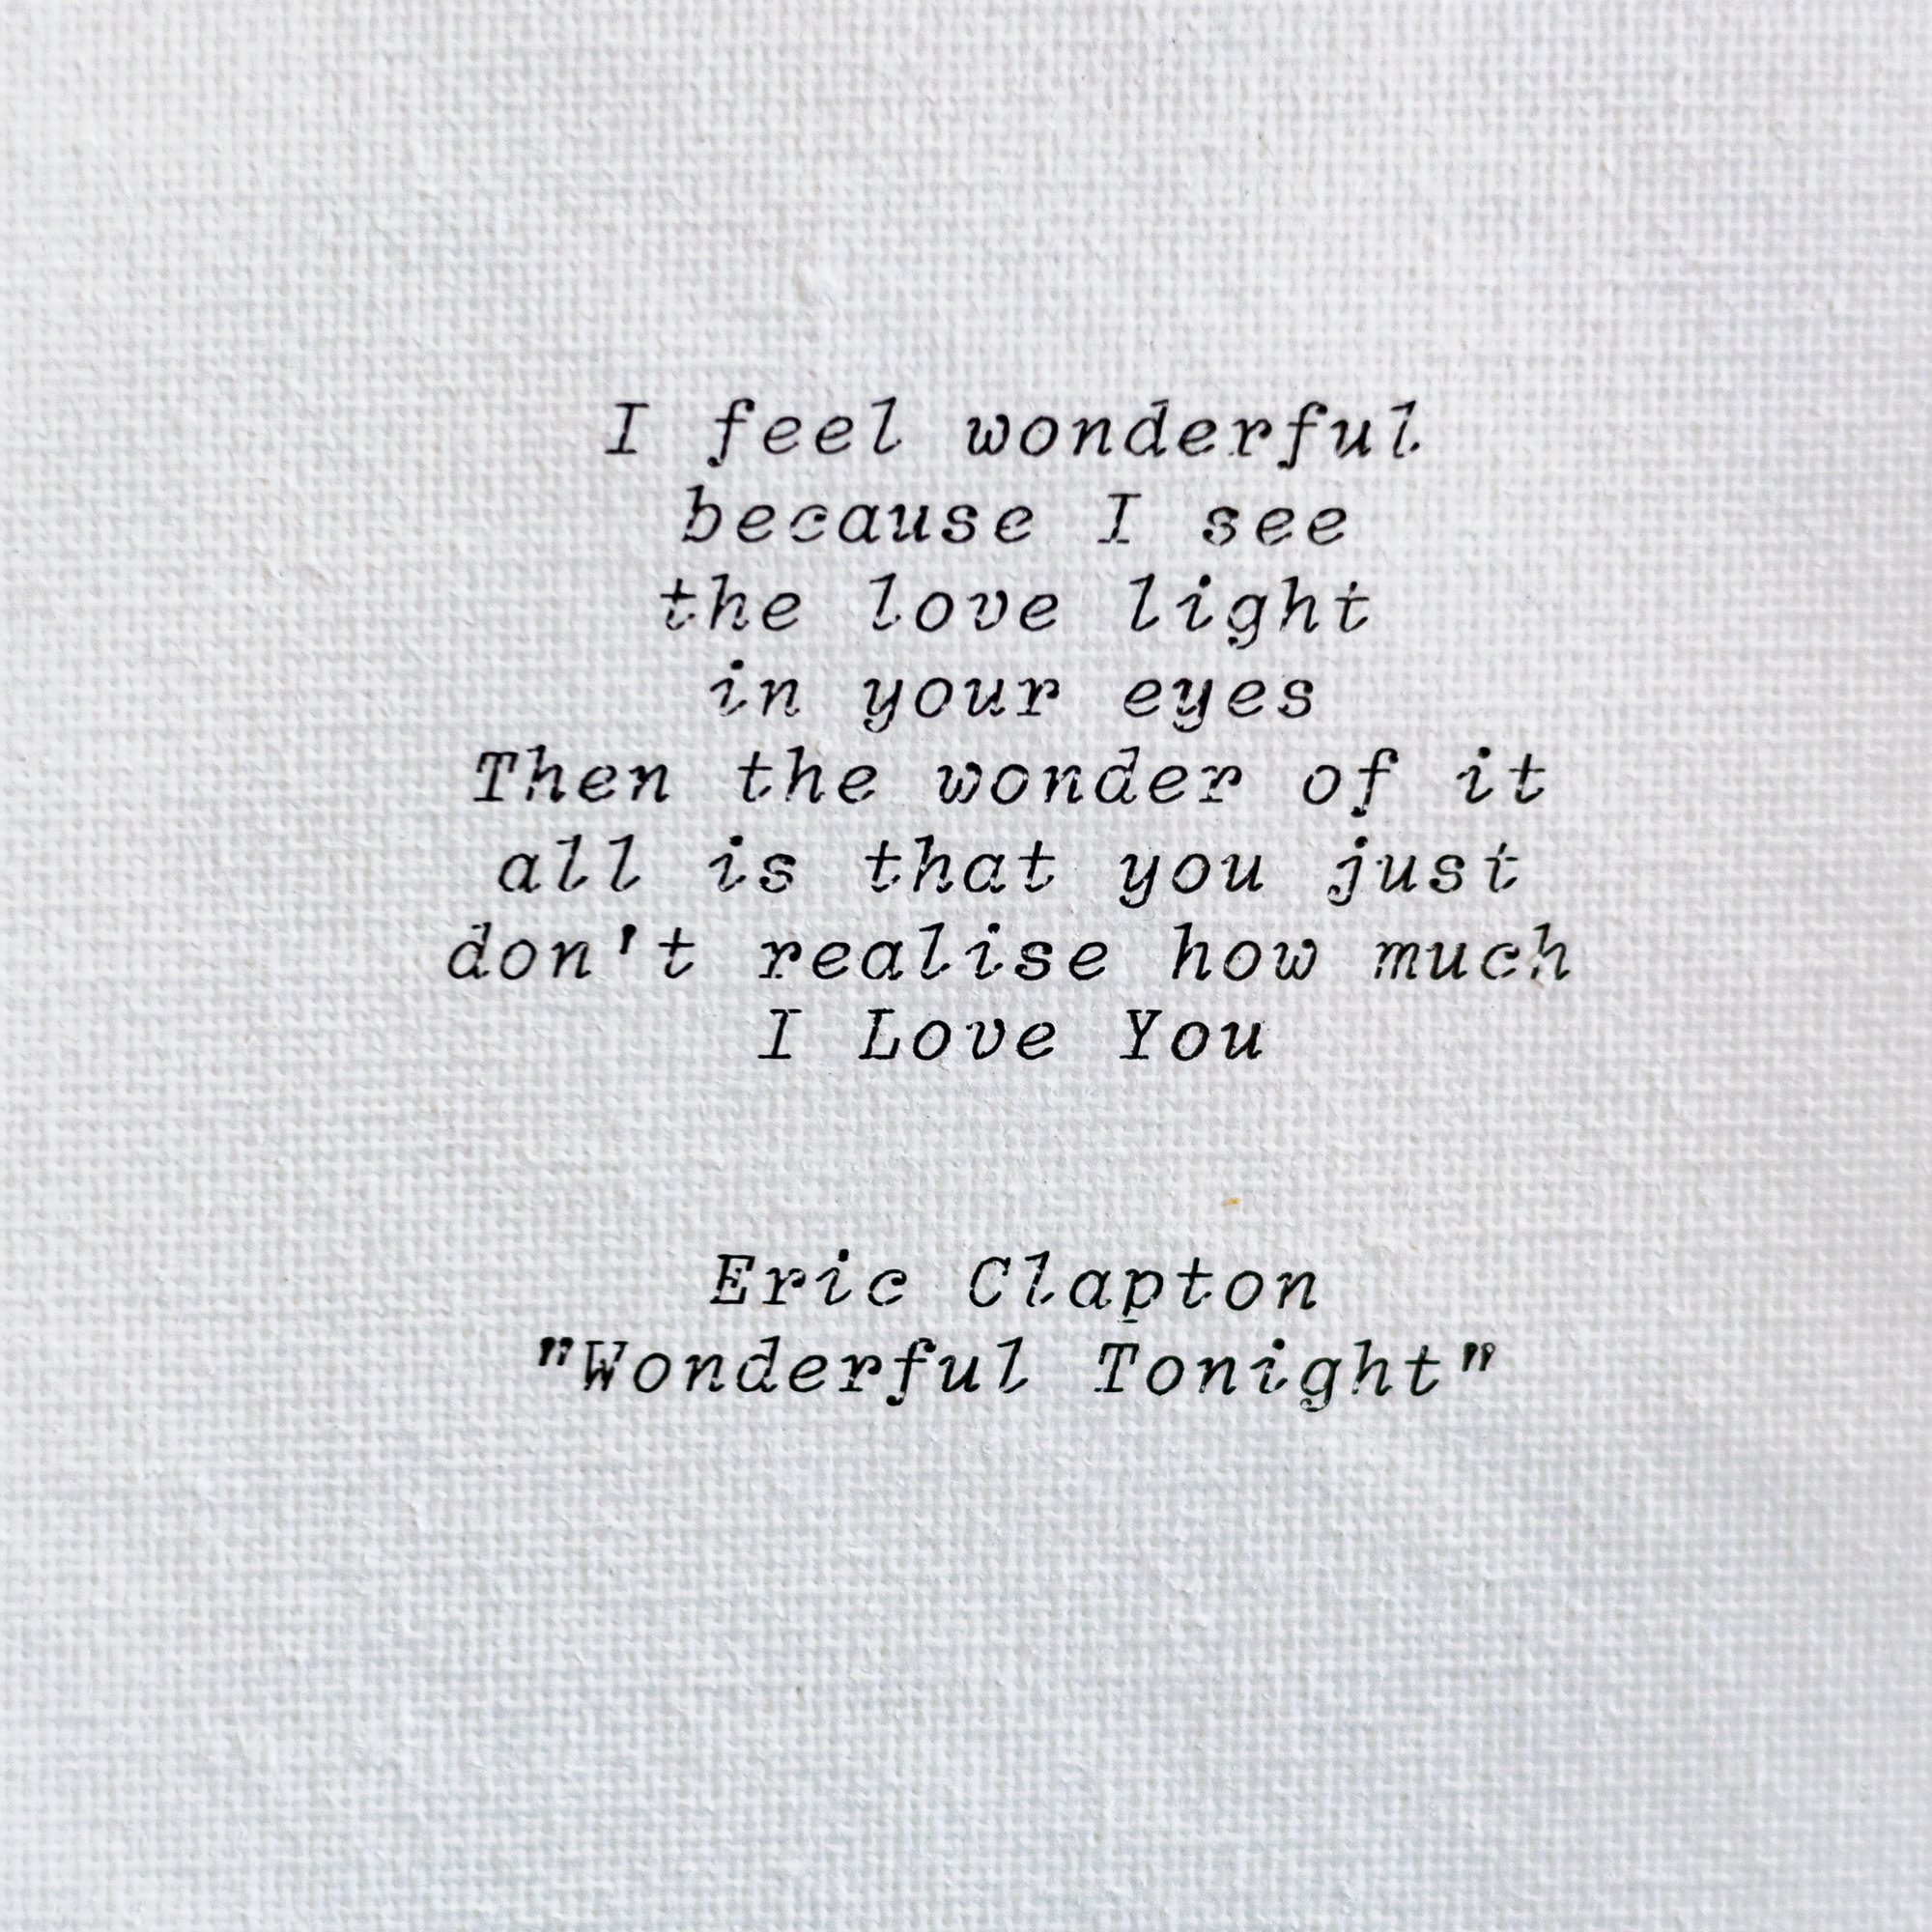 I feel wonderful
because I see
the love light
in your eyes
Then the wonder of it
all is that you just
don't realise how much
I Love You
Eric Clapton
"Wonderful Tonight"